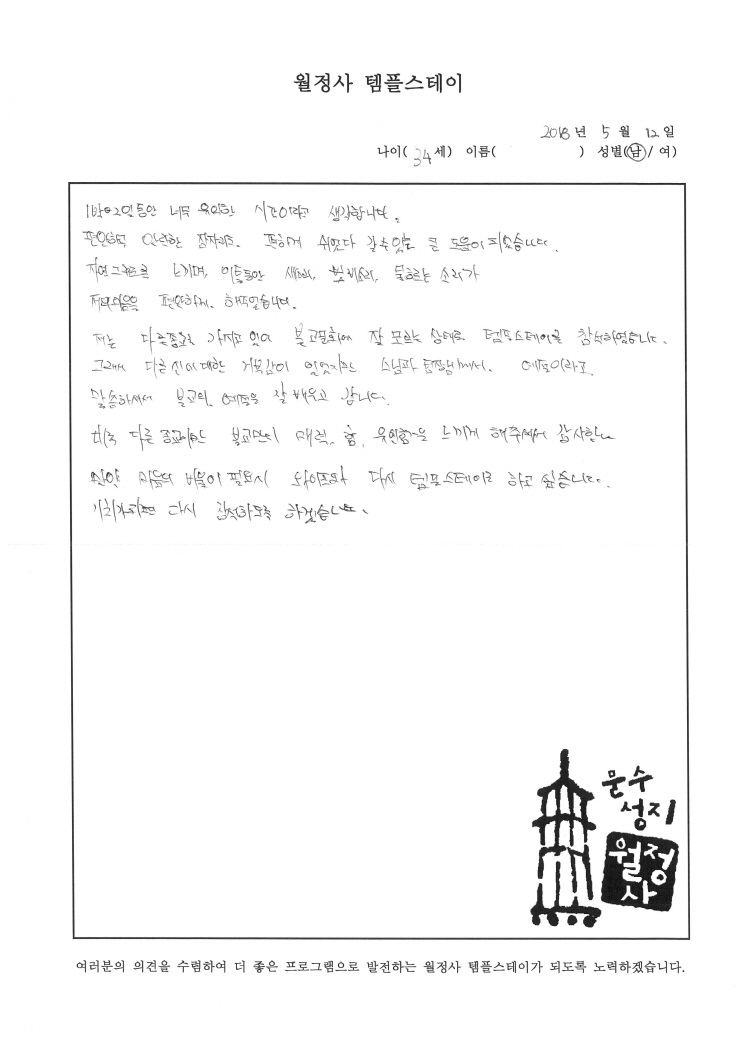 월정사 템플스테이
2018년 5월 12일
나이(34세) 이름( ) 성별(남/여)
1박2일동안 너무 유익한 시간이라고 생각합니다.
편안하고 안락한 잠자리로. 편하게 쉬었다 갈수있는 큰 도움이 되었습니다.
느끼며, 이틀동안 새소리, 물흐르는 소리가
저의마음을 편안하게. 해주었습니다.
저는 다른종교를 가지고 있어 불교문화에 잘 모르는 상태로 템플스테이를 참석하였습니다.
그래서 다른신에대한 거부감이 있었지만 스님과 팀장님께서. 예절이라고
말씀하셔서 불교의 예절을 잘 배우고 갑니다.
비록 다른 종교이지만 불교만의 매력, 힘, 유익함을 느끼게 해주셔서 감사합니다
만약 마음의 비움이 필요시 와이프와 다시 템플스테이를 하고 싶습니다.
기회가되면 다시 참석하도록 하겠습니다.
문수
성지
월정
사
여러분의 의견을 수렴하여 더 좋은 프로그램으로 발전하는 월정사 템플스테이가 되도록 노력하겠습니다.